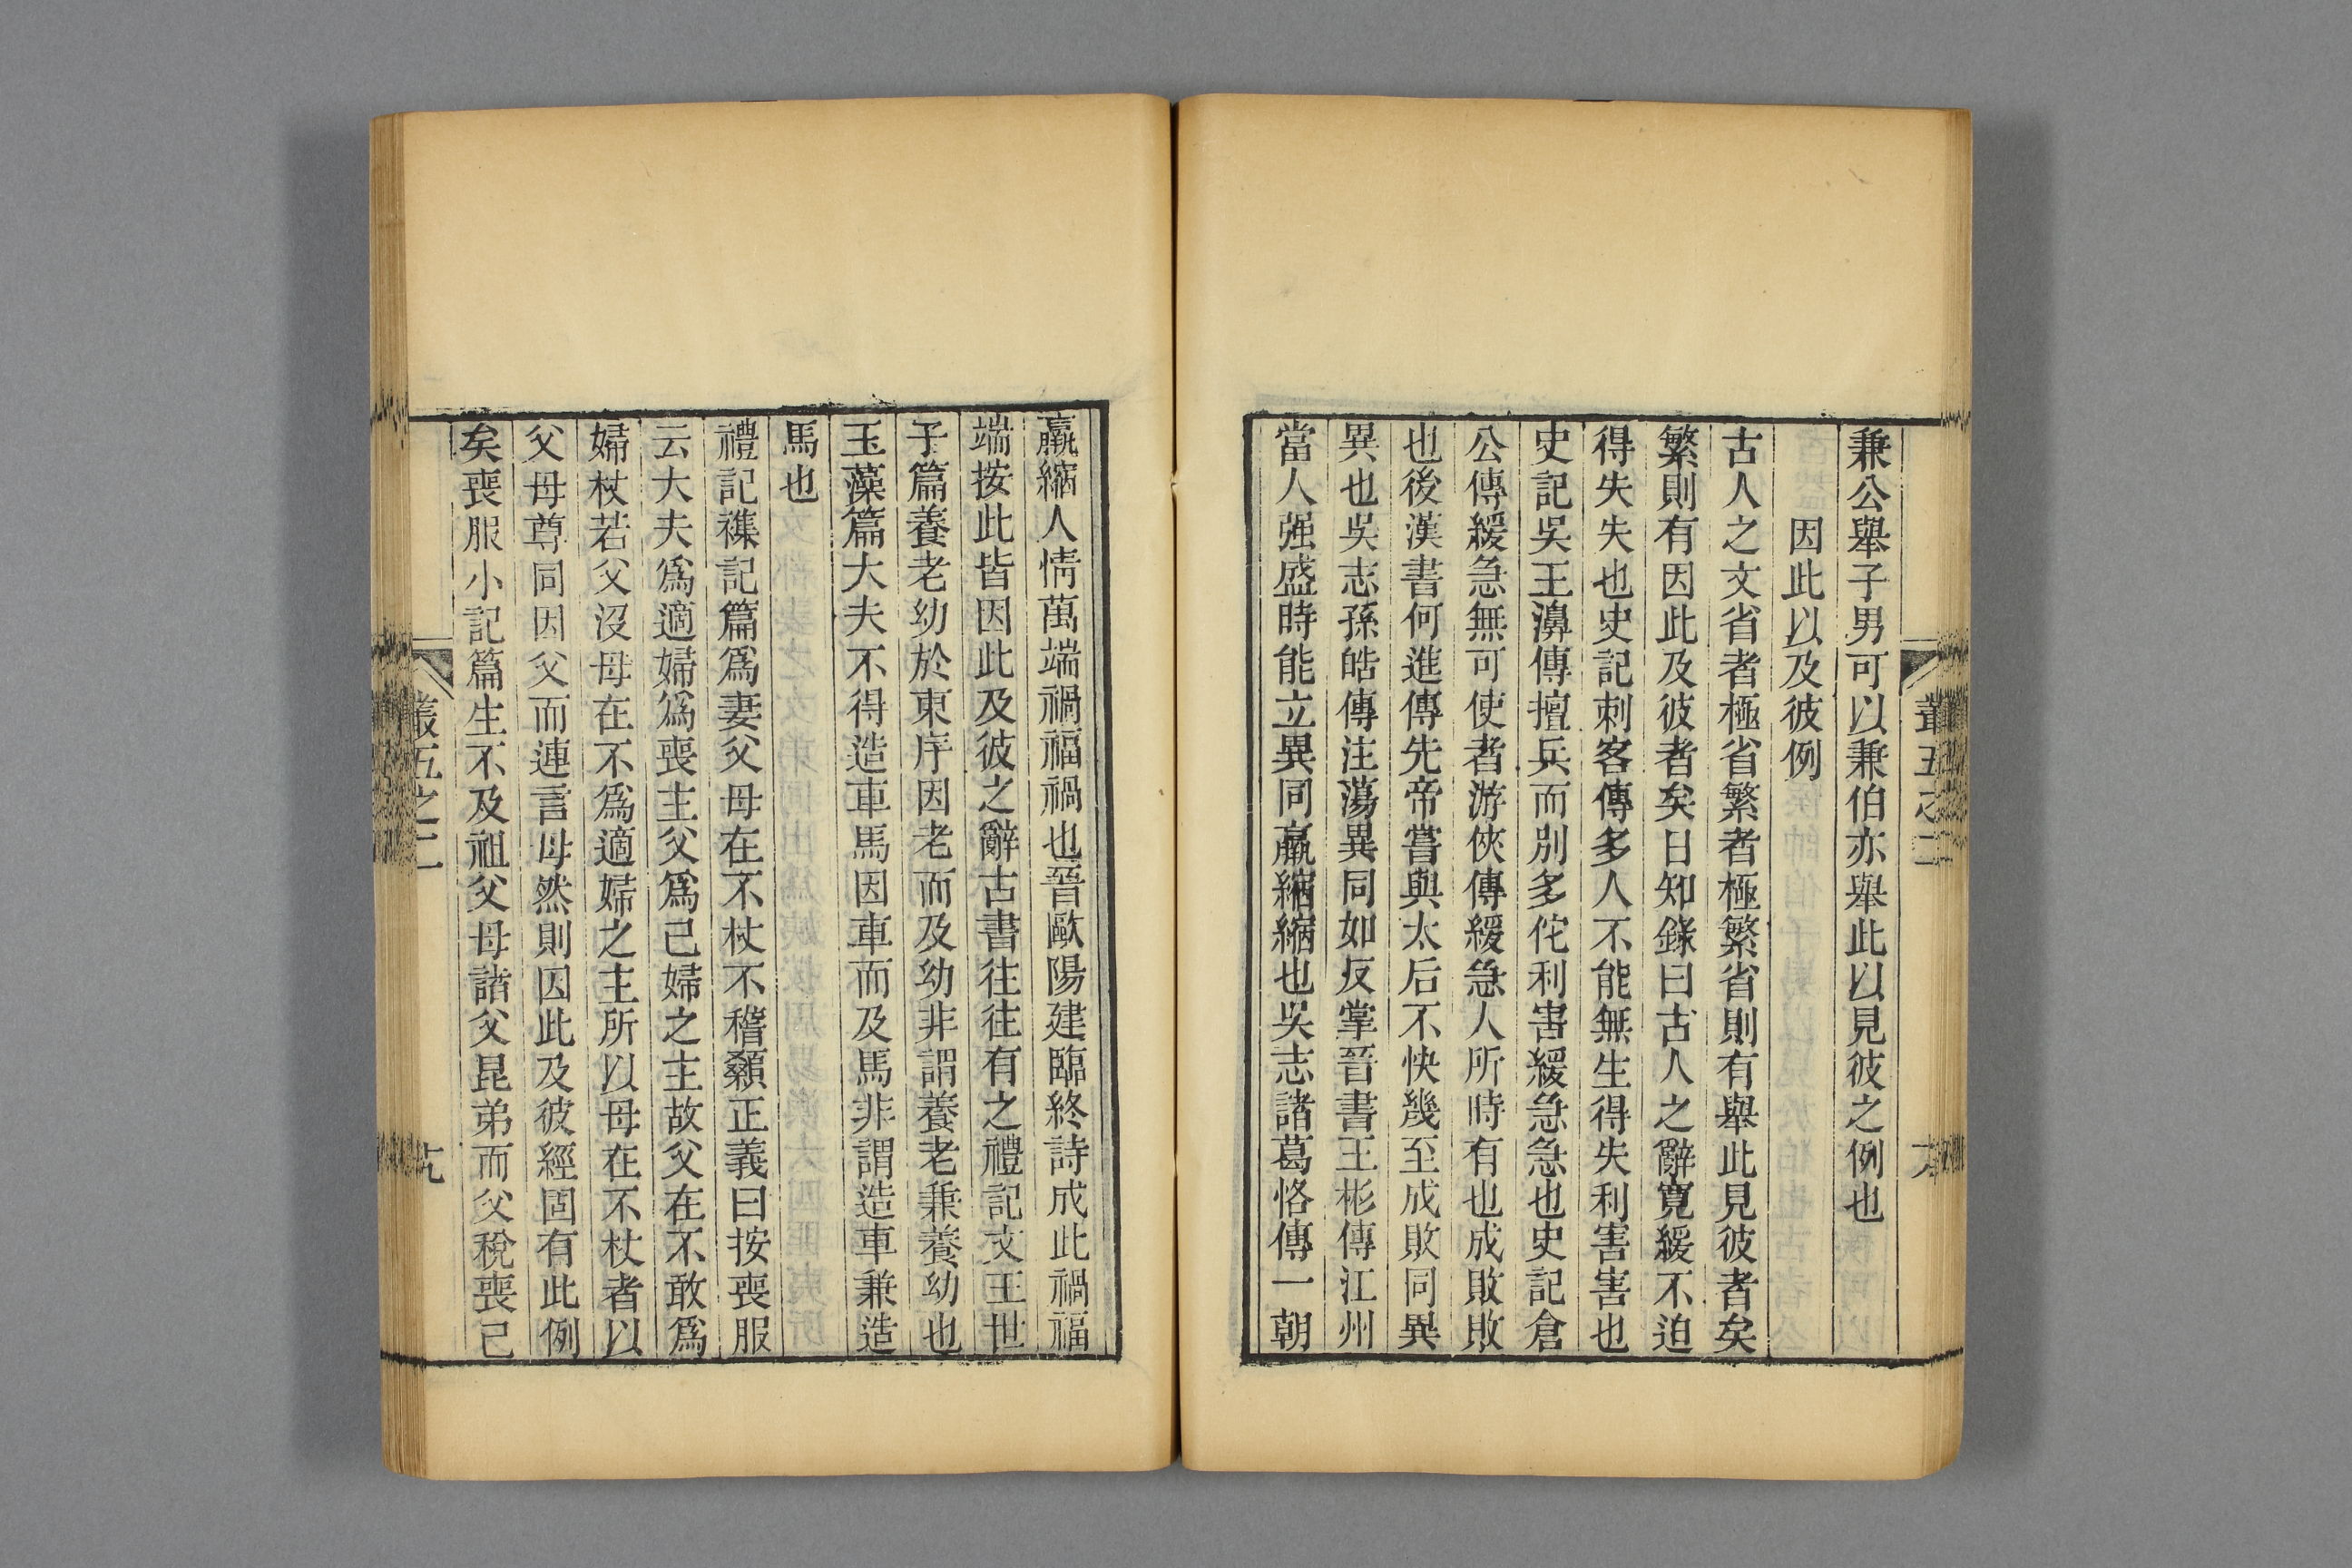 兼公舉子男可以兼伯亦舉此以見彼之例也
因此以及彼例
古人之文省者極省繁者極繁省則有舉此見彼者矣
繁則有因此及彼者矣日知錄曰古人之辭寬緩不迫
得失失也史記刺客傳多人不能無生得失利害害也
史記吳王濞傳擅兵而別多佗利害緩急急也史記倉
公傳緩急無可使者游俠傳緩急人所時有也成敗敗
也後漢書何進傳先帝嘗與太后不快幾至成敗同異
異也吳志孫皓傳注蕩異同如反掌晉書王彬傳江州
當人强盛時能立異同贏縮縮也吳志諸葛恪傳一朝
叢五之二
贏縮人情萬端禍福禍也晉歐陽建臨終詩成此禍福
端按此皆因此及彼之辭古書往往有之禮記文王世
子篇養老幼於東序因老而及幼非謂養老兼養幼也
玉藻篇大夫不得造車馬因車而及馬非謂造車兼造
馬也
禮記襍記篇爲妻父母在不杖不稽顙正義曰按喪服
云大夫爲適婦爲喪主父爲己婦之主故父在不敢爲
婦杖若父沒母在不爲適婦之主所以母在不杖者以
父母尊同因父而連言母然則因此及彼經固有此例
矣喪服小記篇生不及祖父母諸父昆弟而父稅喪己
叢五之二